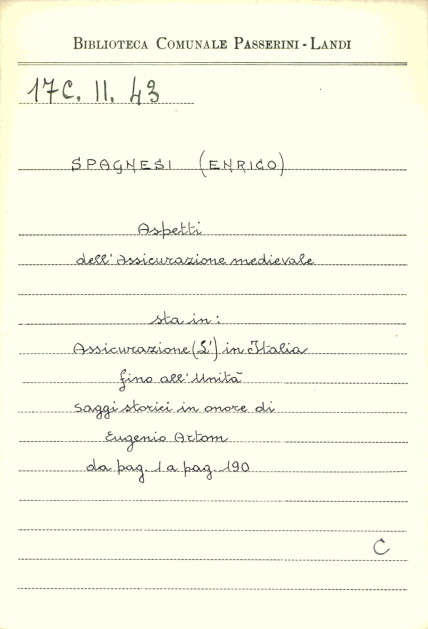 BIBLIOTECA COMUNALE PASSERINI-LANDI
17C. II. 43
SPAGNESI (ENRICO)
Aspetti
dell'Assicurazione medievale
sta in:
Assicurazione (L') in Italia
fino all'Unità
saggi storici in onore di
Eugenio Artom
da pag. 1 a pag. 190
C